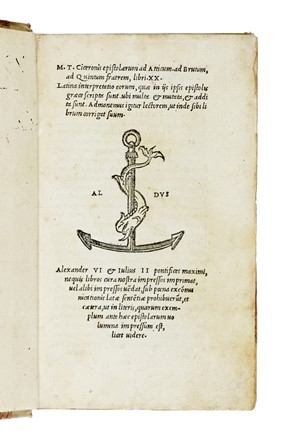 M. T. Ciceronis epistolarum ad Atticum ad Brutum,
ad Quintum fratrem, libri. XX.
Latina interpretatio eorum, quæ in ijs ipsis epistolis
græce scripta sunt. ubi multa & mutata, & addi
ta sunt. Admonemus igitur lectorem, ut inde sibi li
brum corriget suum.
AL DVS
Alexander VI & Iulius II pontifices maximi,
nequis libros cura nostra impressos imprimat,
uel alibi impressos uẽdat, sub pœna excõmu
nicationis latæ sentẽtiæ prohibuerũt, et
cætera, ut in literis, quarum exem-
plum ante hæc epistolarum uo
lumina impressum est,
licet uidere.